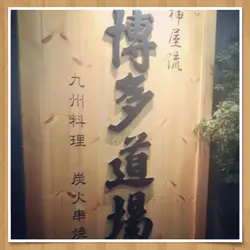 神屋流
博多道場
九州料理 炭火串焼